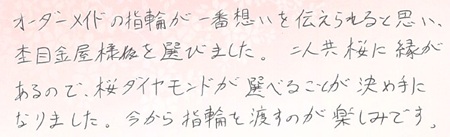 オーダーメイドの指輪が一番想いを伝えられると思い、
杢目金屋様を選びました。二人共桜に縁が
あるので、桜ダイヤモンドが選べることが決め手に
なりました。今から指輪を渡すのが楽しみです。